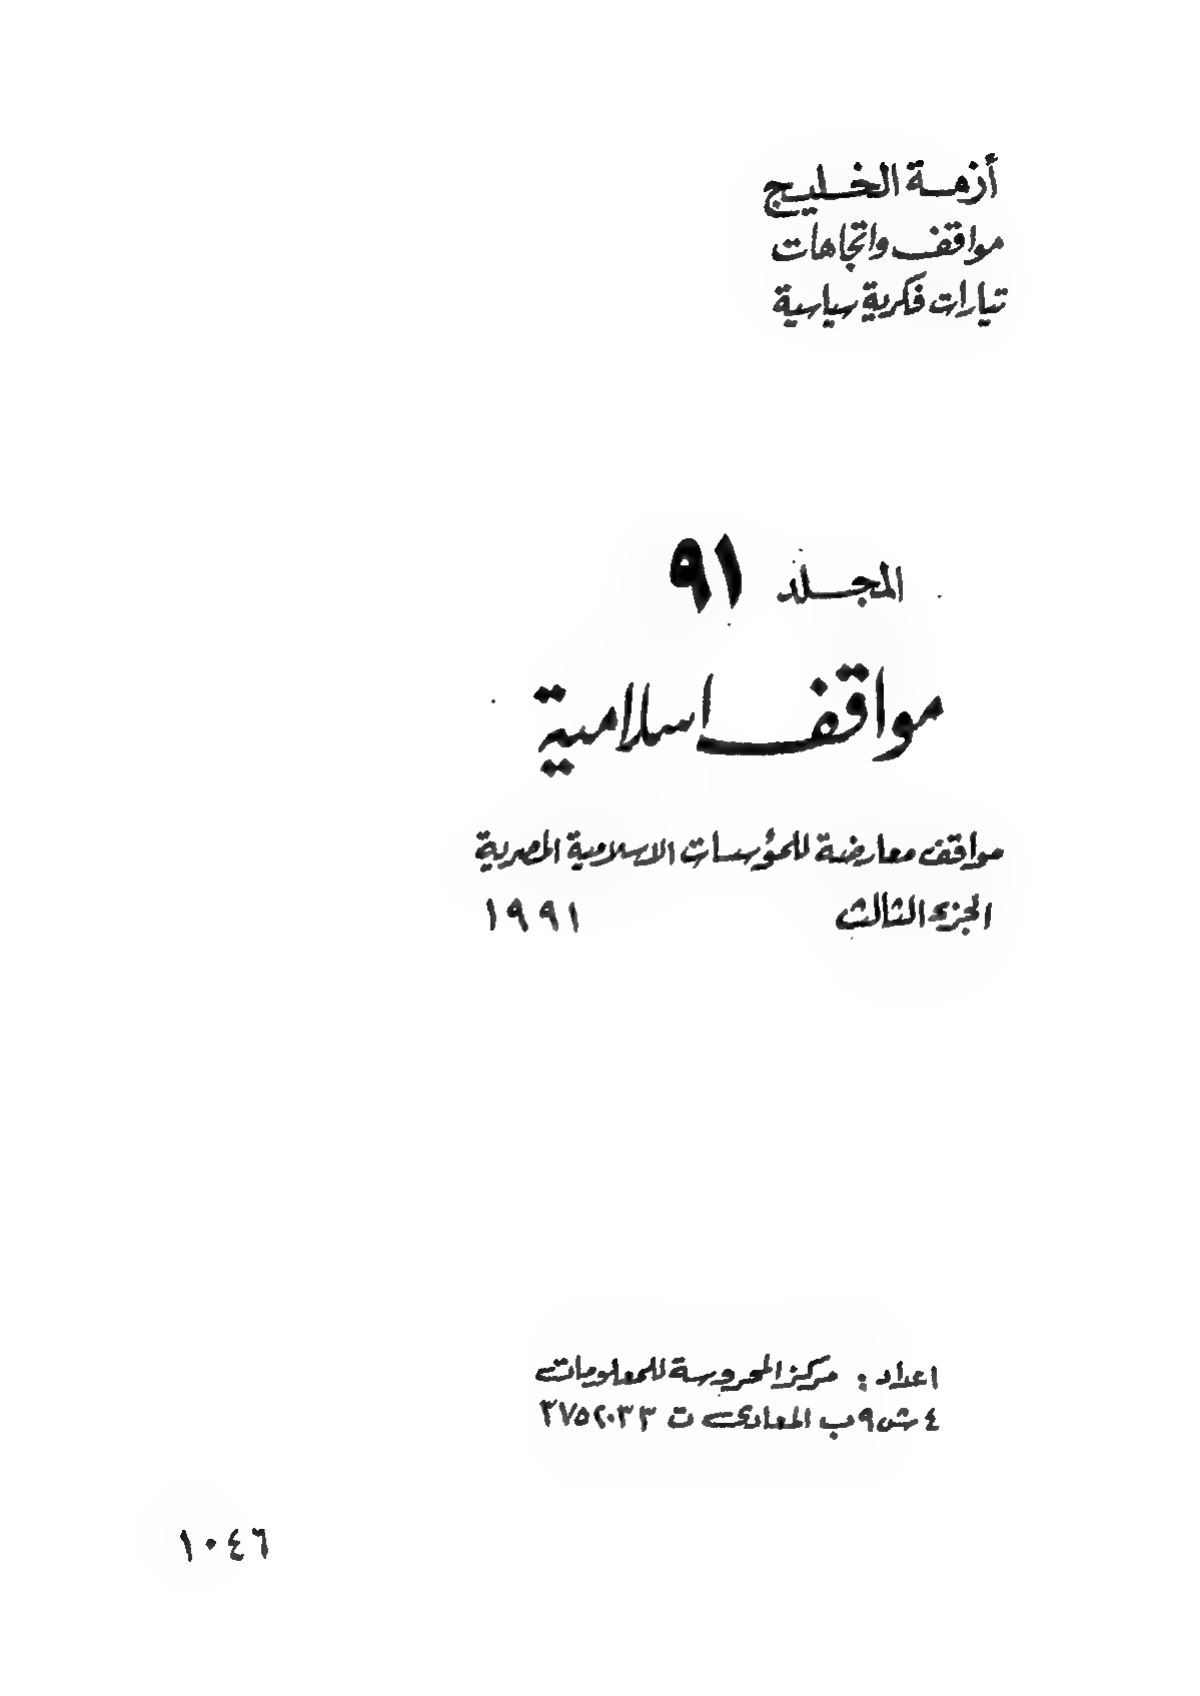 أزمة الخليج
مواقف واتجاهات
تيارات فكرية سياسية
المجلد ٩١
مواقف اسلامية
مواقف معارضة للمؤسسات الاسلامية المصرية
الجزء الثالث ١٩٩١
اعداد: مركز المحروسة للمعلومات
٤ ش ٩ب المعادى ت ٣٧٥٢٠٣٣
١٠٤٦